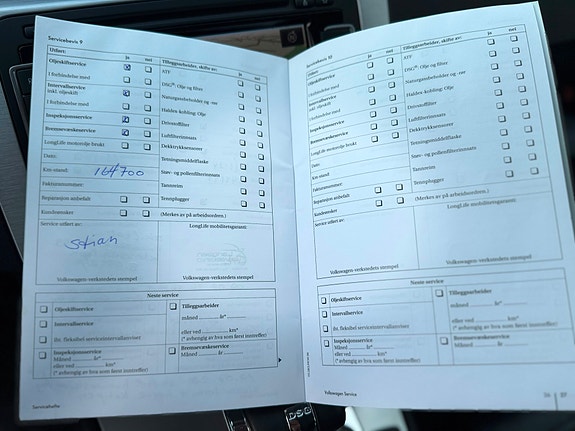 Servicebevis 9
Utført: ja nei
Oljeskiftservice
I forbindelse med
Intervallservice
inkl. oljeskift
I forbindelse med
Inspeksjonsservice
Bremsevæskeservice
LongLife motorolje brukt
Dato:
Km-stand: 164700
Fakturanummer:
Reparasjon anbefalt
Kundeønsker
Service utført av:
Stian
Volkswagen-verkstedets stempel
Tilleggsarbeider, skifte av: ja nei
ATF
DSG®: Olje og filter
Naturgassbeholder og -rør
Haldex-kobling: Olje
Drivstoffilter
Luftfilterinnsats
Dekktrykksensorer
Tetningsmiddelflaske
Støv- og pollenfilterinnsats
Tannreim
Tennplugger
(Merkes av på arbeidsordren.)
LongLife mobilitetsgaranti:
Volkswagen-verkstedets stempel
Neste service
Oljeskiftservice
Intervallservice
iht. fleksibel serviceintervallviser
Inspeksjonsservice
Måned år*
eller ved km*
(* avhengig av hva som først inntreffer)
Tilleggsarbeider
måned år*
eller ved km*
(* avhengig av hva som først inntreffer)
Bremsevæskeservice
Måned år
Servicehefte
Servicebevis 10
Utført: ja nei
Oljeskiftservice
I forbindelse med
Intervallservice
inkl. oljeskift
I forbindelse med
Inspeksjonsservice
Bremsevæskeservice
LongLife motorolje brukt
Dato:
Km-stand:
Fakturanummer:
Reparasjon anbefalt
Kundeønsker
Service utført av:
Volkswagen-verkstedets stempel
Tilleggsarbeider, skifte av: ja nei
ATF
DSG®: Olje og filter
Naturgassbeholder og -rør
Haldex-kobling: Olje
Drivstoffilter
Luftfilterinnsats
Dekktrykksensorer
Tetningsmiddelflaske
Støv- og pollenfilterinnsats
Tannreim
Tennplugger
(Merkes av på arbeidsordren.)
LongLife mobilitetsgaranti:
Volkswagen-verkstedets stempel
Neste service
Oljeskiftservice
Intervallservice
iht. fleksibel serviceintervallviser
Inspeksjonsservice
Måned år*
eller ved km*
(* avhengig av hva som først inntreffer)
Tilleggsarbeider
måned år*
eller ved km*
(* avhengig av hva som først inntreffer)
Bremsevæskeservice
Måned år
Volkswagen Service
DSG